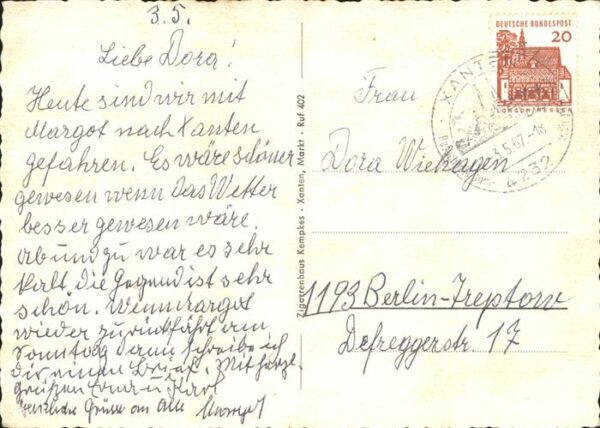 3.5.
Liebe Dora!
Heute sind wir mit
Margot nach Xanten
gefahren. Es wäre schöner
gewesen wenn das Wetter
besser gewesen wäre.
ab und zu war es sehr
kalt, die Gegend ist sehr
schön. Wenn Margot
wieder zurückfährt am
Sonntag dann schreibe ich
Dir einen Brief. Mit herzl.
Grüßen Erna u. Karl
Herzliche Grüsse an Alle Margot
Zigarrenhaus Kempkes - Xanten, Markt - Ruf 402
DEUTSCHE BUNDESPOST
20
LORSCH/HESSEN
XANTEN
3.5.67-18
4232
Frau
Dora Wiehagen
1193 Berlin-Treptow
Defreggerstr. 17